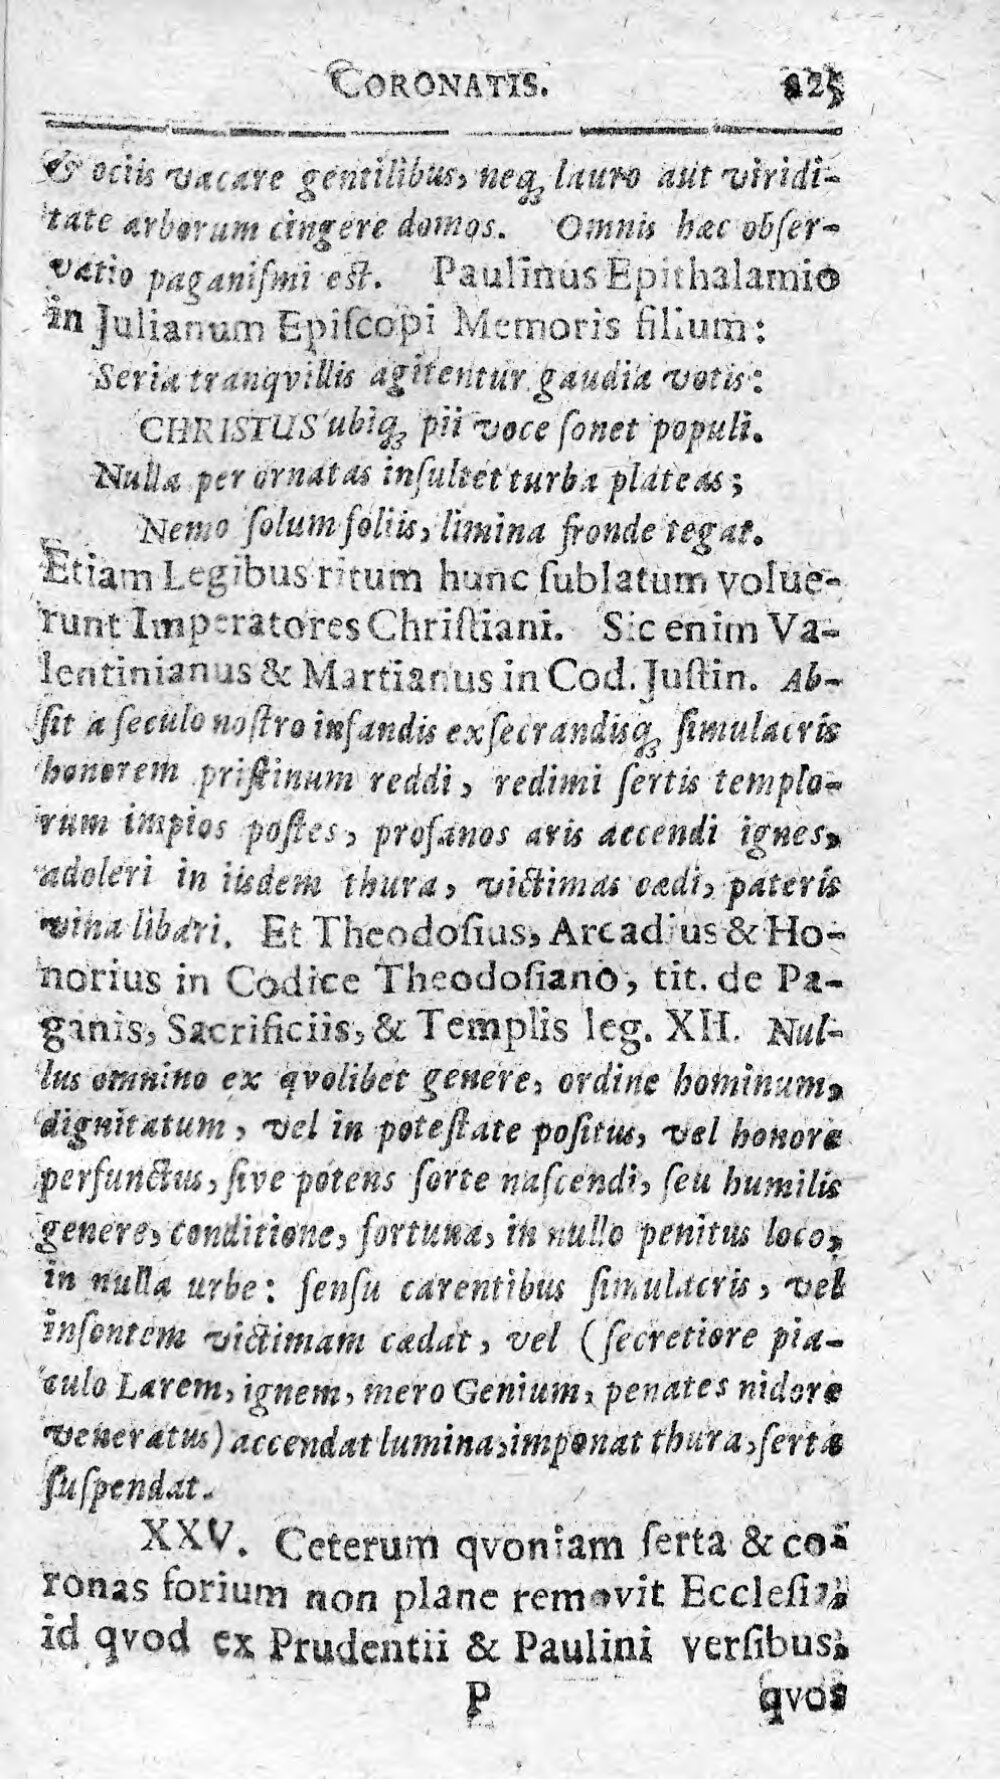 CORONATIS. 225
& ociis vacare gentilibus, neq; lauro aut viridi-
tate arborum cingere domos. Omnis hæc obſer-
vatio paganiſmi eſt. Paulinus Epithalamio
in Julianum Epiſcopi Memoris filium:
Seria tranqvillis agitentur gaudia votis:
CHRISTUS ubiq; pii voce ſonet populi.
Nulla per ornatas inſultet turba plateas;
Nemo ſolum foliis, limina fronde tegat.
Etiam Legibus ritum hunc ſublatum volue-
runt Imperatores Chriſtiani. Sic enim Va-
lentinianus & Martianus in Cod. Juſtin. Ab-
ſit a ſeculo noſtro infandis exſecrandisq; ſimulacris
honorem priſtinum reddi, redimi ſertis templo-
rum impios poſtes, profanos aris accendi ignes,
adoleri in iisdem thura, victimas cædi, pateris
vina libari. Et Theodoſius, Arcadius & Ho-
norius in Codice Theodoſiano, tit. de Pa-
ganis, Sacrificiis, & Templis leg. XII. Nul-
lus omnino ex qvolibet genere, ordine hominum,
dignitatum, vel in poteſtate poſitus, vel honore
perfunctus, ſive potens ſorte naſcendi, ſeu humilis
genere, conditione, fortuna, in nullo penitus loco,
in nulla urbe: ſenſu carentibus ſimulacris, vel
inſontem victimam cædat, vel (ſecretiore pia-
culo Larem, ignem, mero Genium, penates nidore
veneratus) accendat lumina, imponat thura, ſerta
ſuſpendat.
XXV. Ceterum qvoniam ſerta & co-
ronas forium non plane removit Eccleſia,
id qvod ex Prudentii & Paulini verſibus,
P qvos